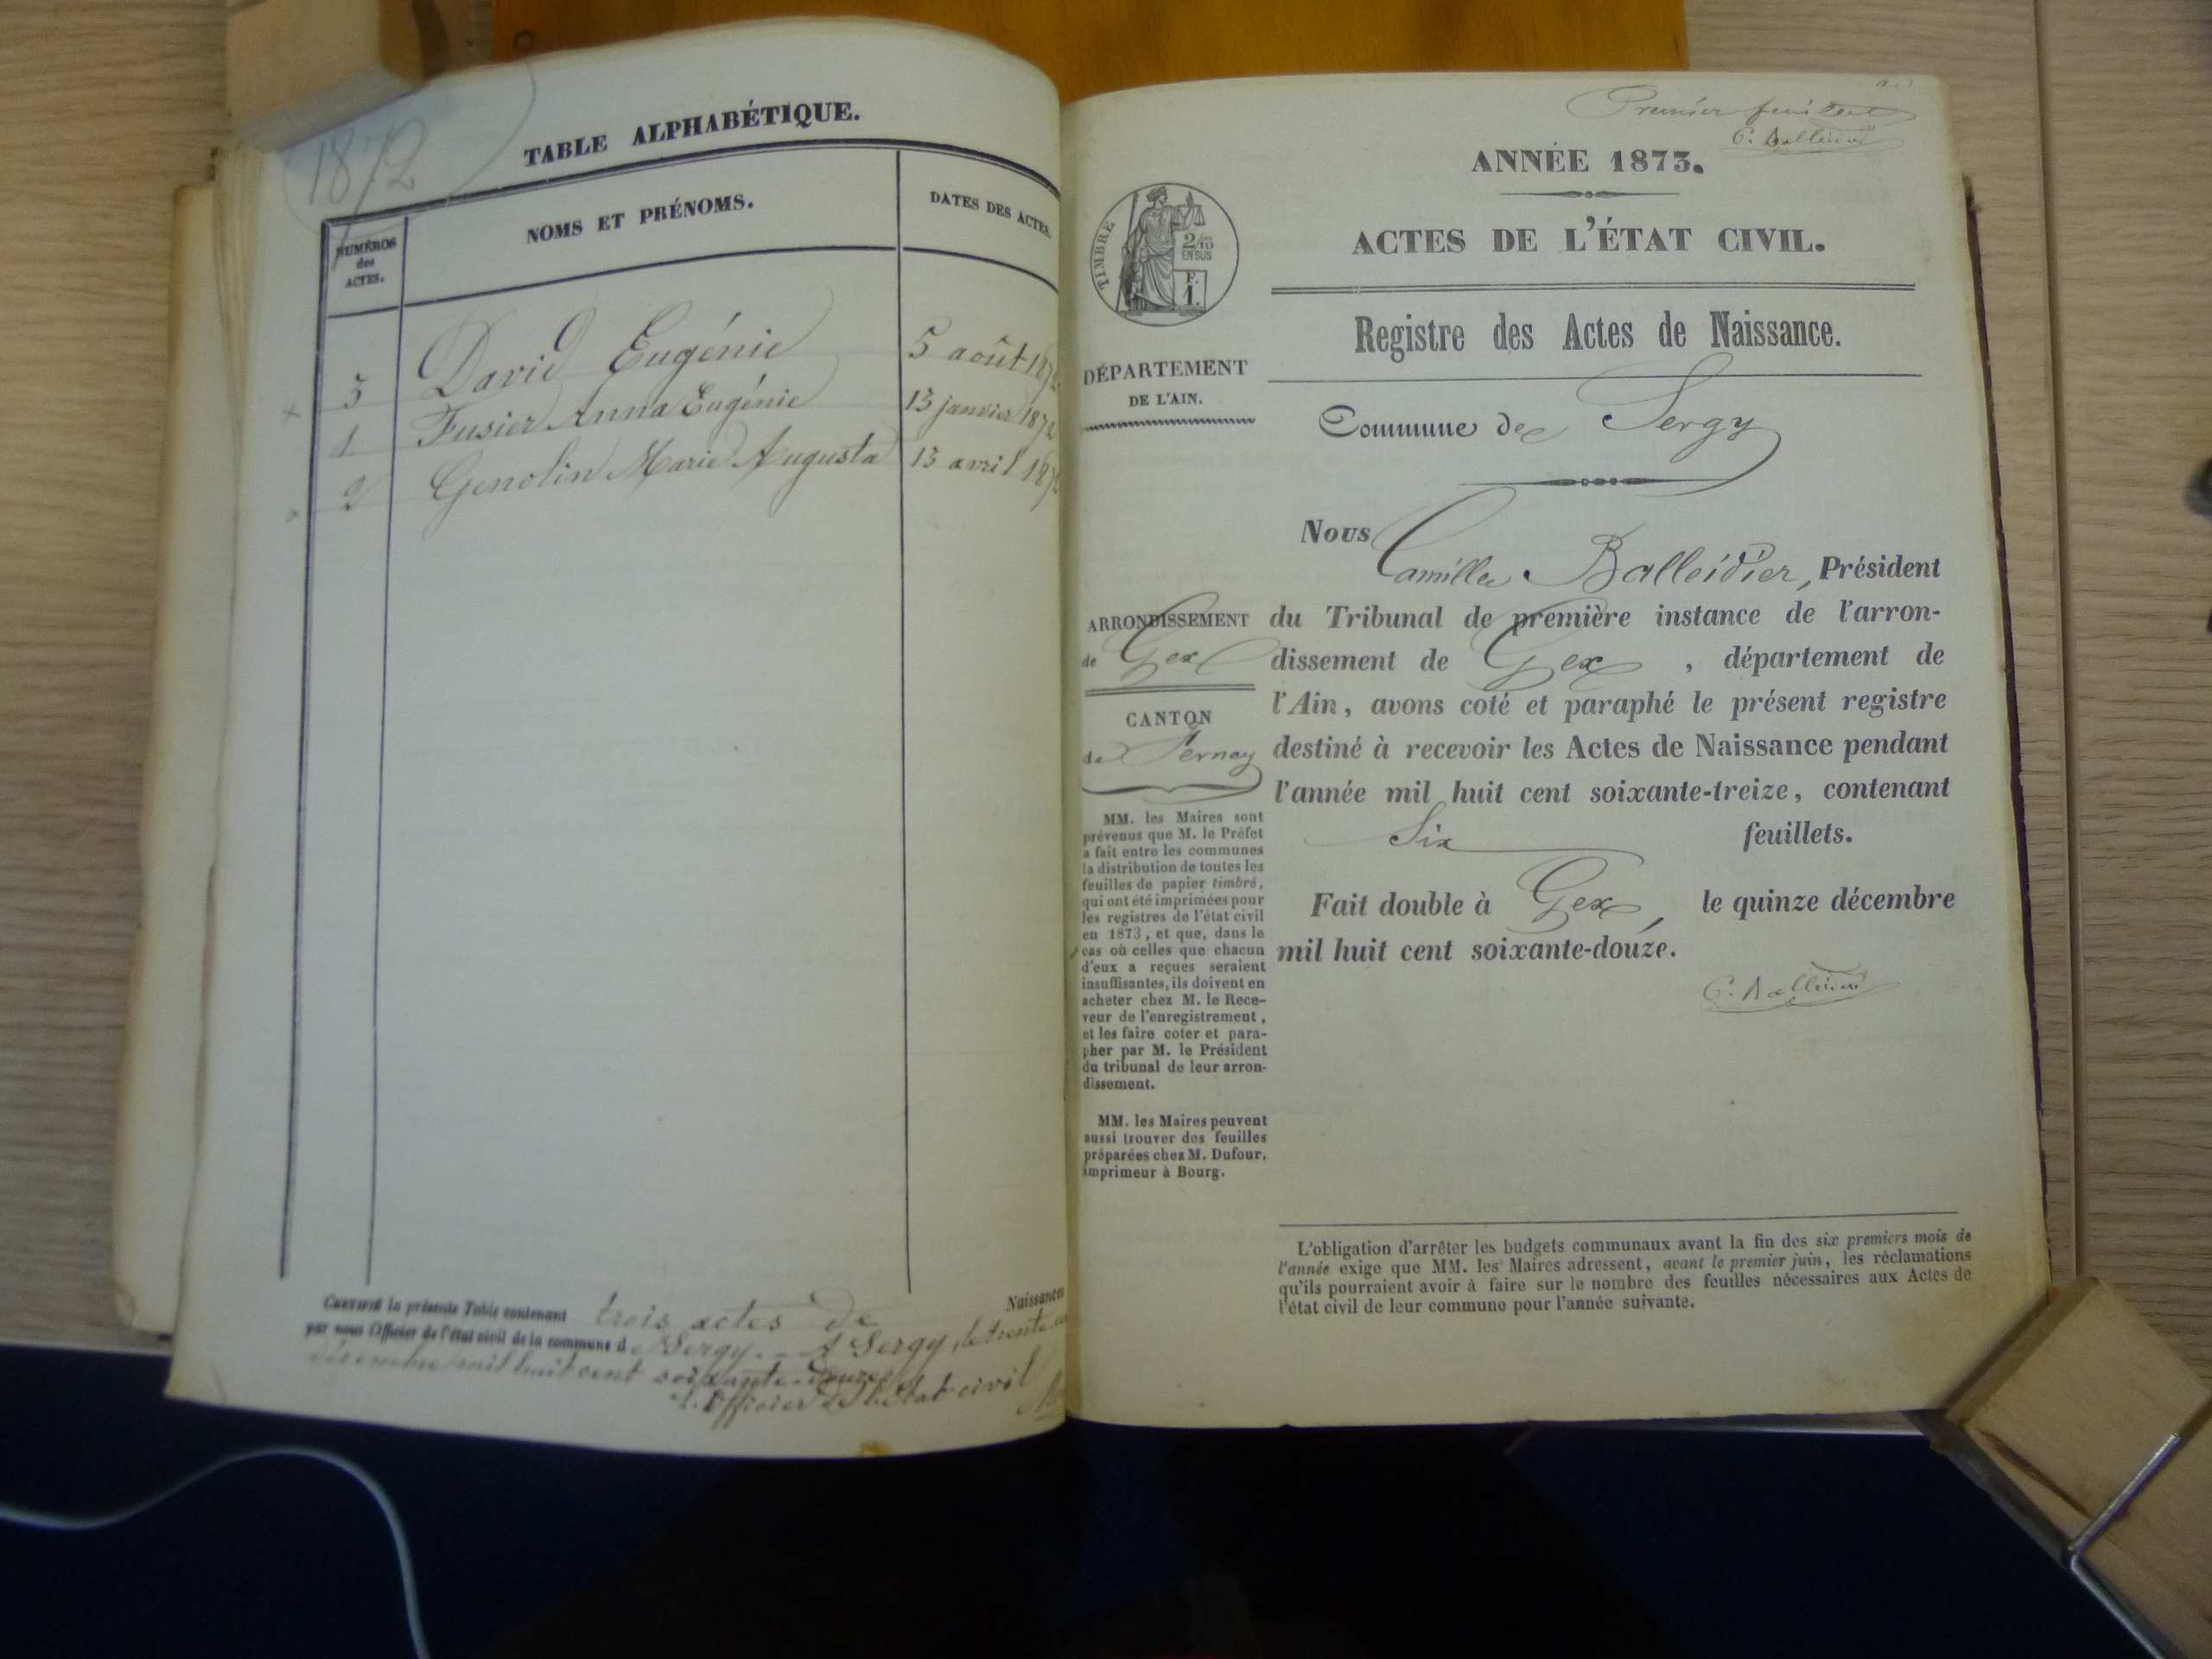 1872
TABLE ALPHABÉTIQUE.
NUMÉROS
des
ACTES.
NOMS ET PRÉNOMS.
DATES DES ACTES.
3 David Eugénie 5 août 1872
1 Fusier Anna Eugénie 13 janvier 1872
2 Genolin Marie Augusta 13 avril 1872
CERTIFIÉ la présente Table contenant trois actes de Naissances
par nous Officier de l'état civil de la commune de Sergy. - A Sergy, le trente un
décembre mil huit cent soixante-douze
L'Officier de l'Etat civil
Premier feuillet
C. Balleidier
ANNÉE 1873.
ACTES DE L'ÉTAT CIVIL.
TIMBRE
2/10
EN SUS
F.
1.
Registre des Actes de Naissance.
DÉPARTEMENT
DE L'AIN.
Commune de Sergy
Nous
Camille Balleidier, Président
du Tribunal de première instance de l'arron-
dissement de Gex, département de
l'Ain, avons coté et paraphé le présent registre
destiné à recevoir les Actes de Naissance pendant
l'année mil huit cent soixante-treize, contenant
Six feuillets.
Fait double à Gex, le quinze décembre
mil huit cent soixante-douze.
C. Balleidier
ARRONDISSEMENT
de Gex
CANTON
de Ferney
MM. les Maires sont
prévenus que M. le Préfet
a fait entre les communes
la distribution de toutes les
feuilles de papier timbré,
qui ont été imprimées pour
les registres de l'état civil
en 1873, et que, dans le
cas où celles que chacun
d'eux a reçues seraient
insuffisantes, ils doivent en
acheter chez M. le Rece-
veur de l'enregistrement,
et les faire coter et para-
pher par M. le Président
du tribunal de leur arron-
dissement.
MM. les Maires peuvent
aussi trouver des feuilles
préparées chez M. Dufour,
imprimeur à Bourg.
L'obligation d'arrêter les budgets communaux avant la fin des six premiers mois de
l'année exige que MM. les Maires adressent, avant le premier juin, les réclamations
qu'ils pourraient avoir à faire sur le nombre des feuilles nécessaires aux Actes de
l'état civil de leur commune pour l'année suivante.